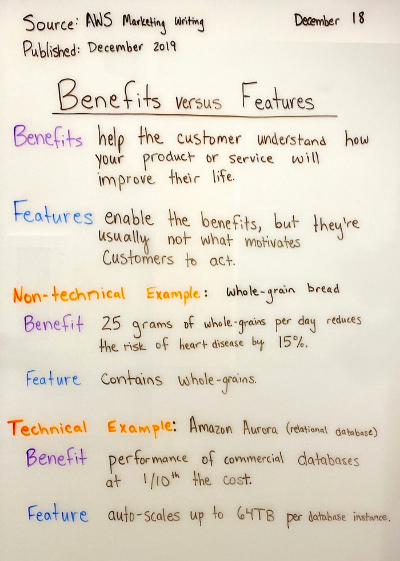 Source: AWS Marketing Writing December 18
Published: December 2019
Benefits versus Features
Benefits help the customer understand how
your product or service will
improve their life.
Features enable the benefits, but they're
usually not what motivates
Customers to act.
Non-technical Example: whole-grain bread
Benefit 25 grams of whole-grains per day reduces
the risk of heart disease by 15%.
Feature Contains whole-grains.
Technical Example: Amazon Aurora (relational database)
Benefit performance of commercial databases
at 1/10th the cost.
Feature auto-scales up to 64TB per database instance.